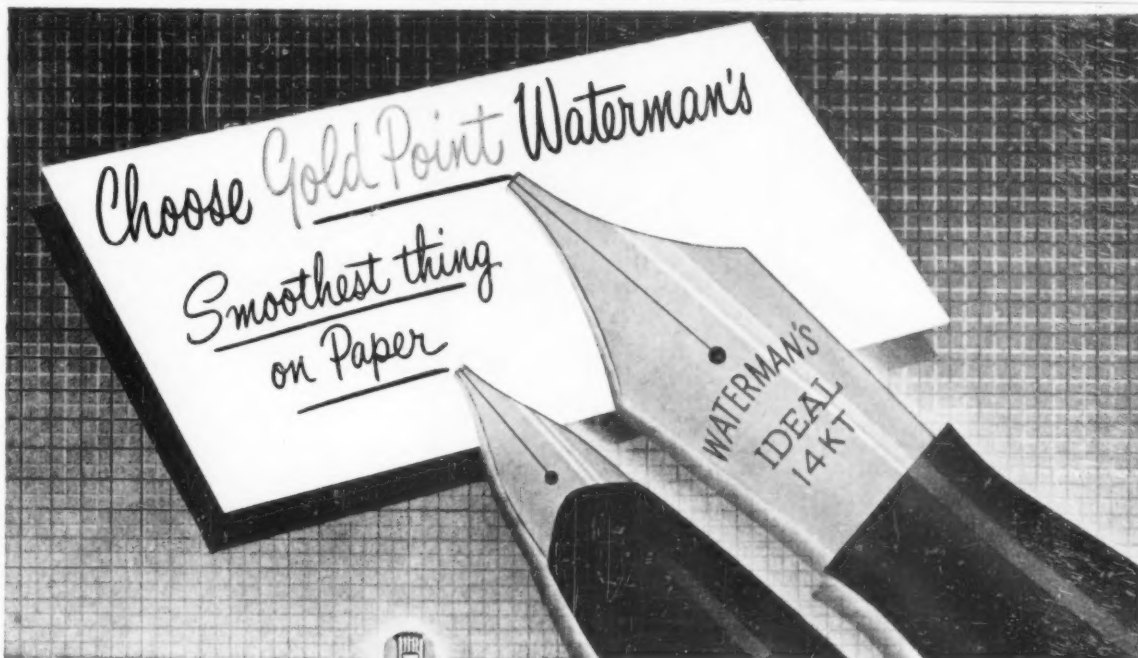 Choose Gold Point Waterman's
Smoothest thing
on Paper
WATERMAN'S
IDEAL
14 KT